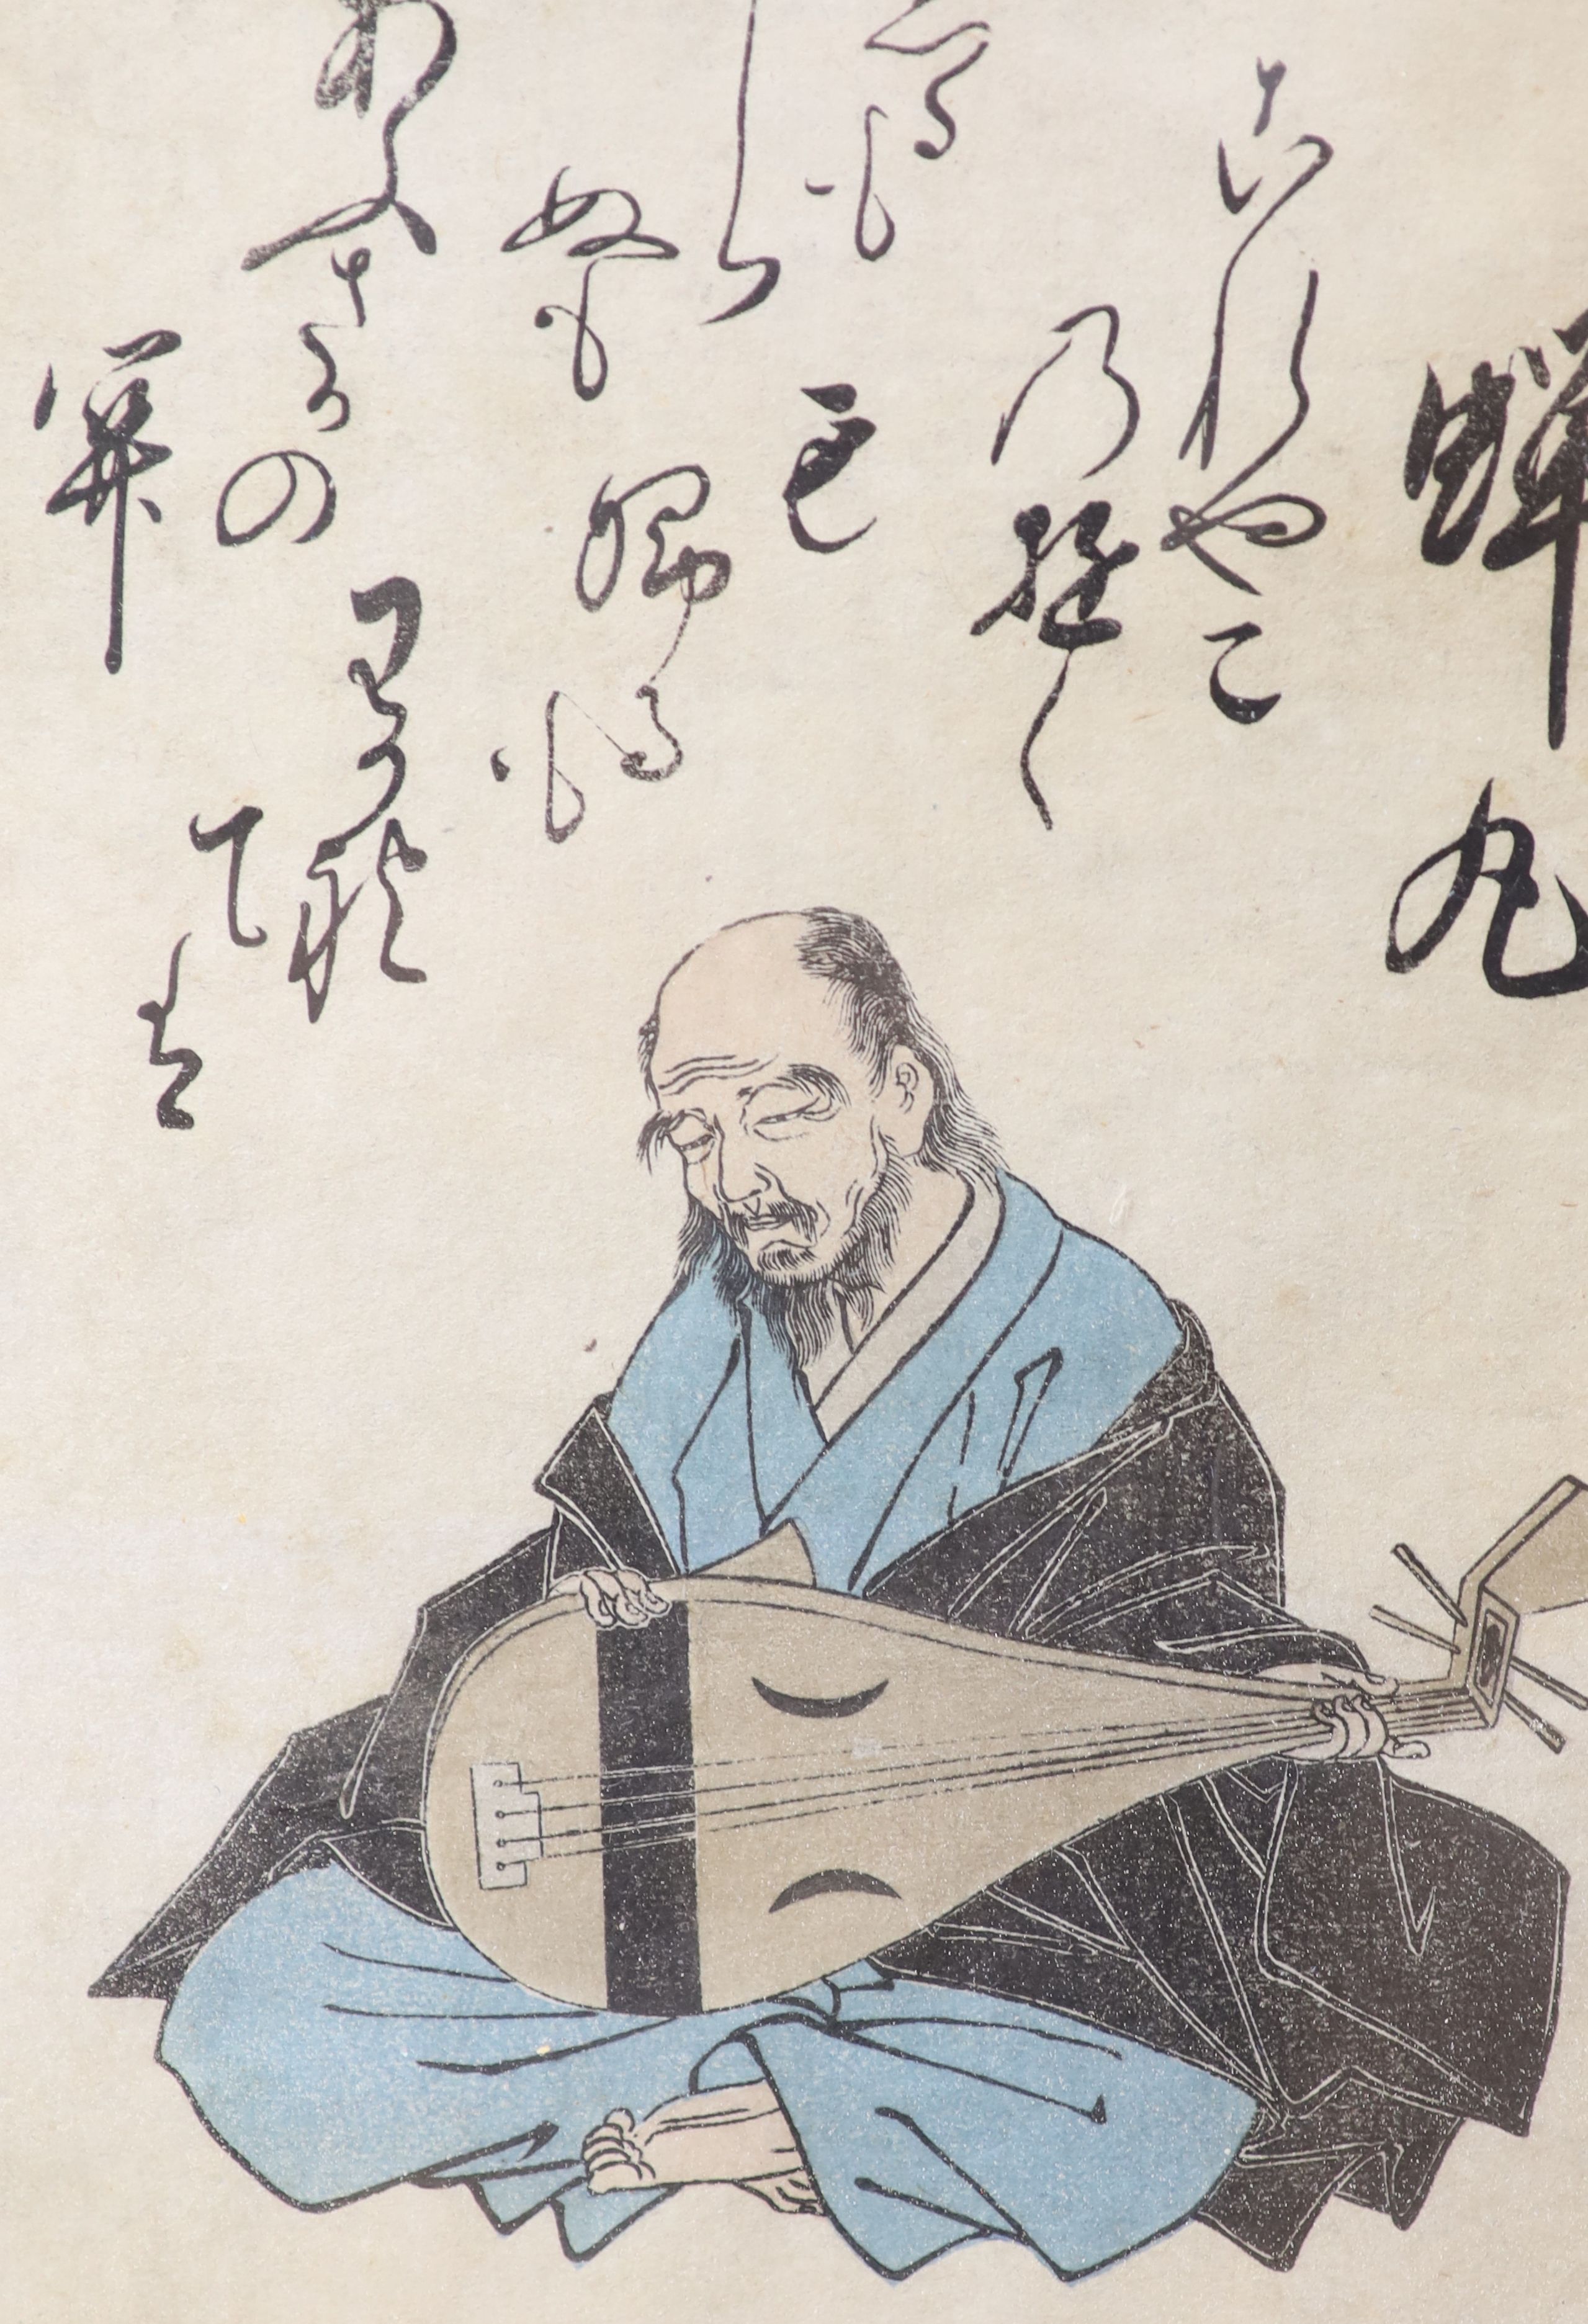 蝉丸
これやこ
乃行く
も
帰るも
わかれ
ては
るも
しら
ぬも
あふさかの
関